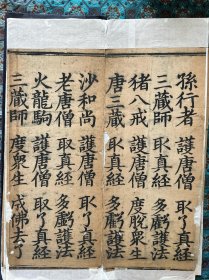 孫行者　護唐僧　取了真經
三藏師　取真經　多虧護法
猪八戒　護唐僧　度脫衆生
唐三藏　取真經　多虧護法
沙和尚　護唐僧　取了真經
老唐僧　取真經　多虧護法
火龍駒　護唐僧　取了真經
三藏師　度衆生　成佛去了